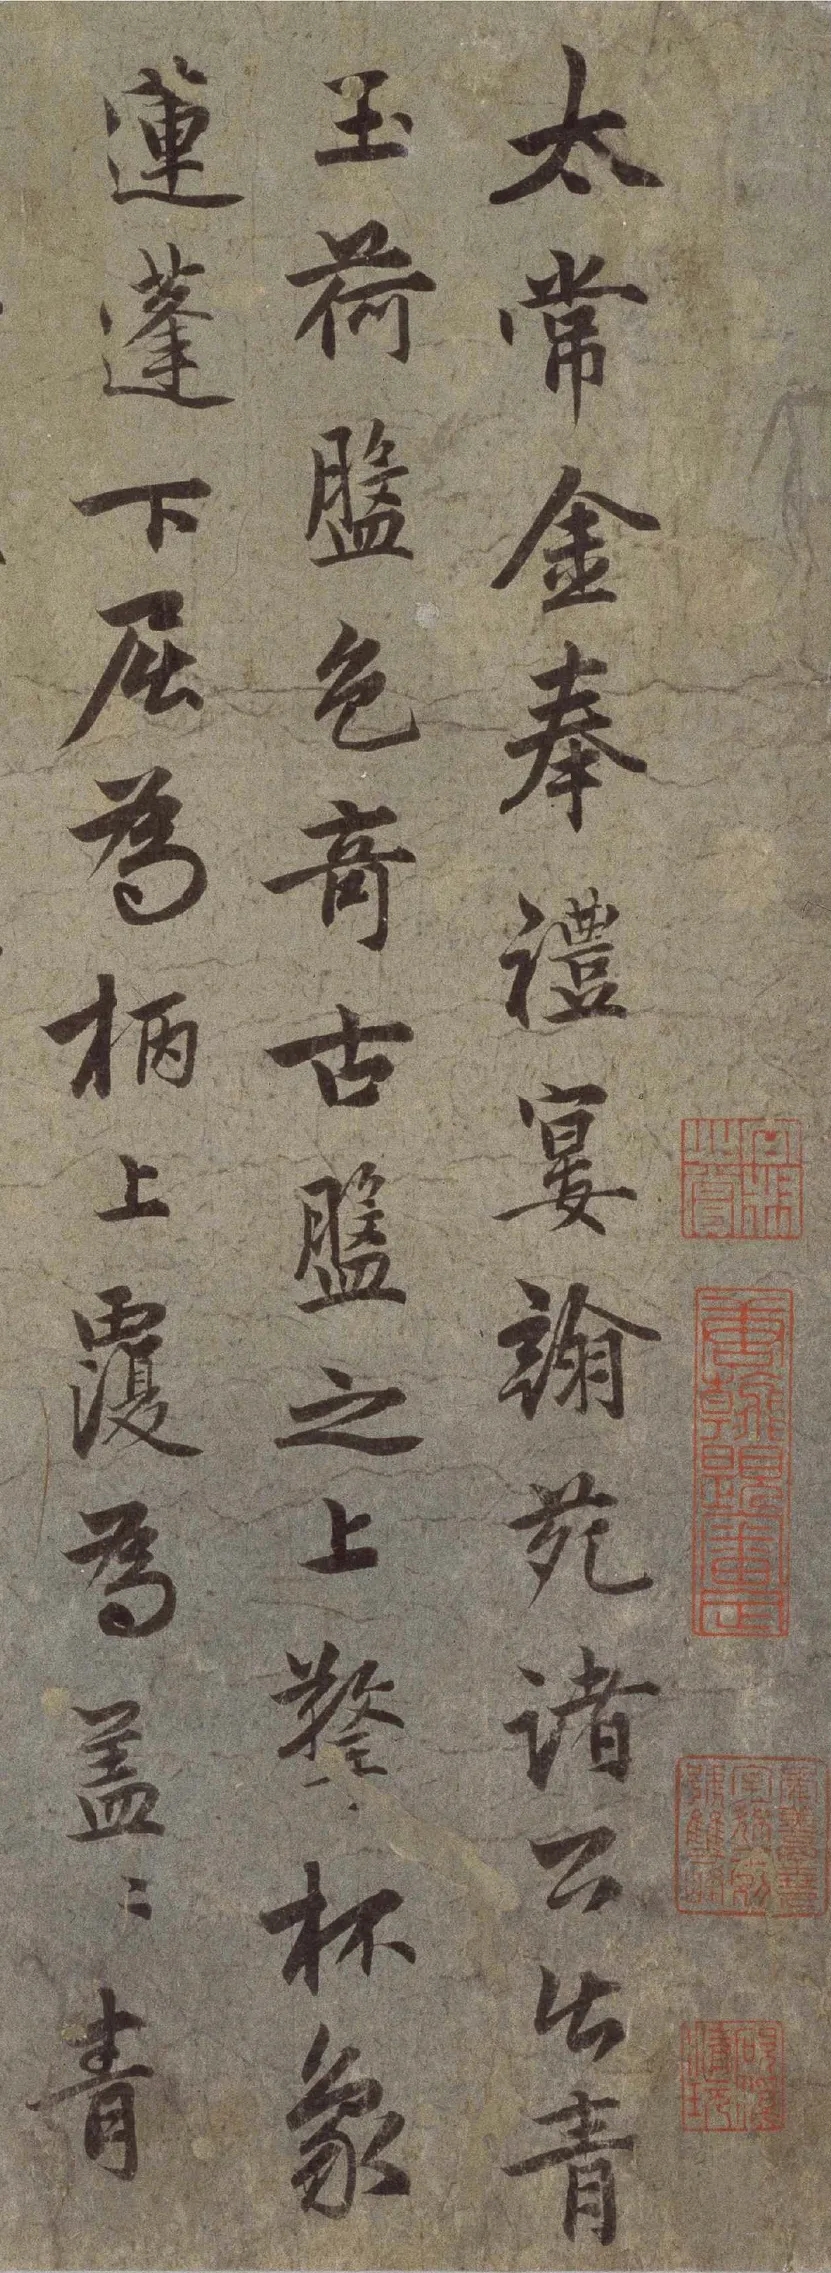 太常金奉禮宴翰苑諸公出青
玉荷盤色奇古盤之上擎杯象
蓮蓬下屈為柄上覆為蓋〻青